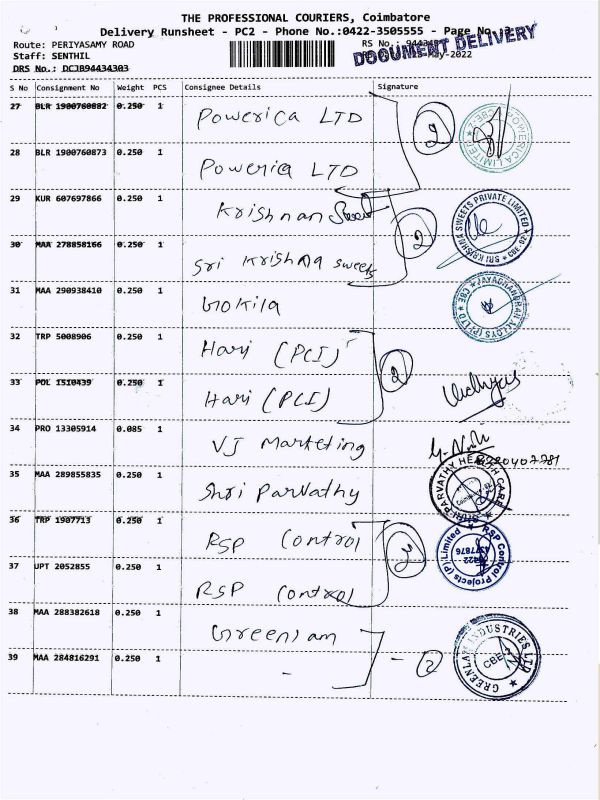 THE PROFESSIONAL COURIERS, Coimbatore
Delivery Runsheet - PC2 - Phone No.:0422-3505555 - Page No.
Route: PERIYASAMY ROAD
RS No.:
Staff: SENTHIL
May-2022
DOCUMENT DELIVERY
DRS No.: DCJB94434303
S No Consignment No Weight PCS Consignee Details Signature
27 BLR 1900760882 0.250 1 Powerica LTD
2
POWERICA LIMITED
28 BLR 1900760873 0.250 1 Powerica LTD
29 KUR 607697866 0.250 1 Krishnan
2
SRI KRISHNA SWEETS PRIVATE LIMITED * CBE-02 *
30 MAA 278858166 0.250 1 Sri Krishna sweets
31 MAA 290938410 0.250 1 Gokila
JAYACHANDRAN ALLOYS (P) LTD * CBE *
32 TRP 5008906 0.250 1 Hari (PCI)
2
33 POL 1510439 0.250 1 Hari (PCI)
34 PRO 13305914 0.085 1 VJ Marketing
35 MAA 289855835 0.250 1 Shri Parvathy
SHRI PARVATHY HEALTH CARE
36 TRP 1907713 0.250 1 RSP Control
2
RSP Control Projects (P) Limited
0422
4377876
37 UPT 2052855 0.250 1 RSP Control
38 MAA 288382618 0.250 1 Greenlam
39 MAA 284816291 0.250 1 -
- 2
GREENLAM INDUSTRIES LTD
CBE